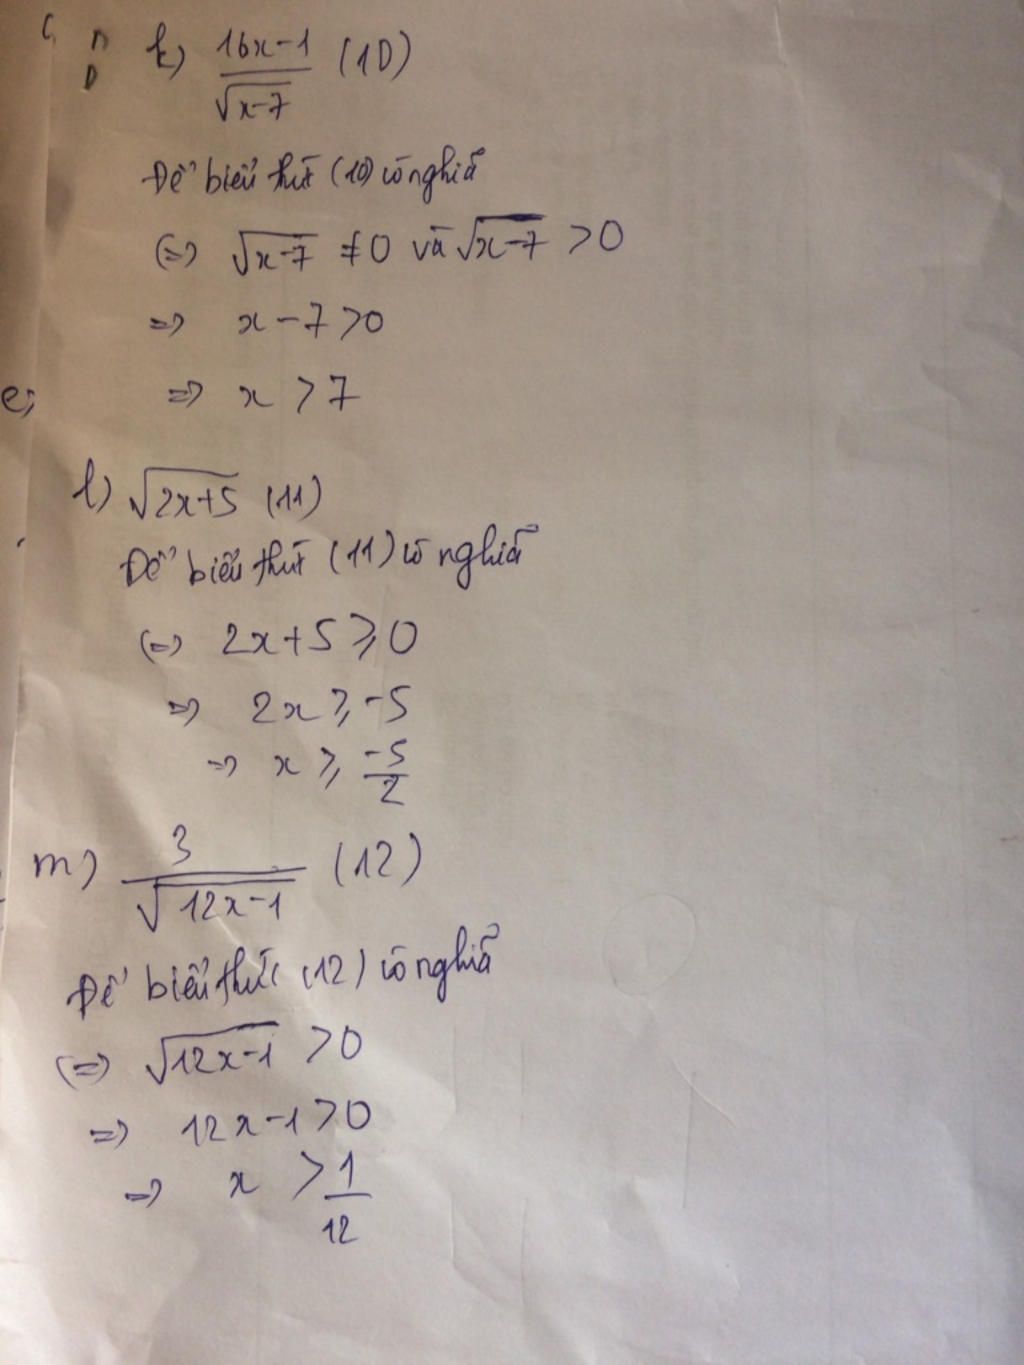 k) \frac{16x-1}{\sqrt{x-7}} (10)
Để biểu thức (10) có nghĩa
(=) \sqrt{x-7} ≠ 0 và \sqrt{x-7} > 0
=> x - 7 > 0
e, => x > 7
l) \sqrt{2x+5} (11)
Để biểu thức (11) có nghĩa
(=) 2x + 5 ≥ 0
=> 2x ≥ -5
=> x ≥ \frac{-5}{2}
m) \frac{3}{\sqrt{12x-1}} (12)
Để biểu thức (12) có nghĩa
(=) \sqrt{12x-1} > 0
=> 12x - 1 > 0
=> x > \frac{1}{12}